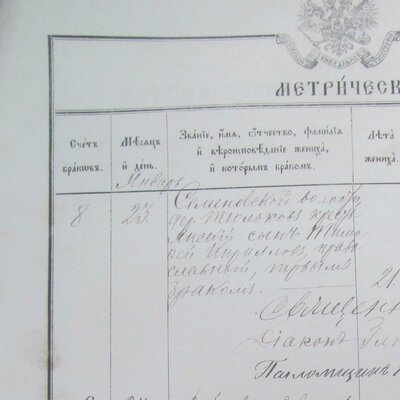 МЕТРИ́ЧЕСК
Сче́тъ бра́ковъ.
Мѣ́сяцъ и҆ де́нь.
Зва́нїе, и҆́мя, ѻ҆́тчество, фами́лїя и҆ вѣроисповѣ́данїе жениха̀, и҆ кото́рымъ бра́комъ.
Лѣ́та жениха̀.
Январь
8
23
Семеновской волости,
дер. Тюльковъ крест
янскій сынъ Тимо
ѳей Кирилловъ, право
славный, первымъ
бракомъ.
21.
Священ
Діаконъ
Псаломщикъ